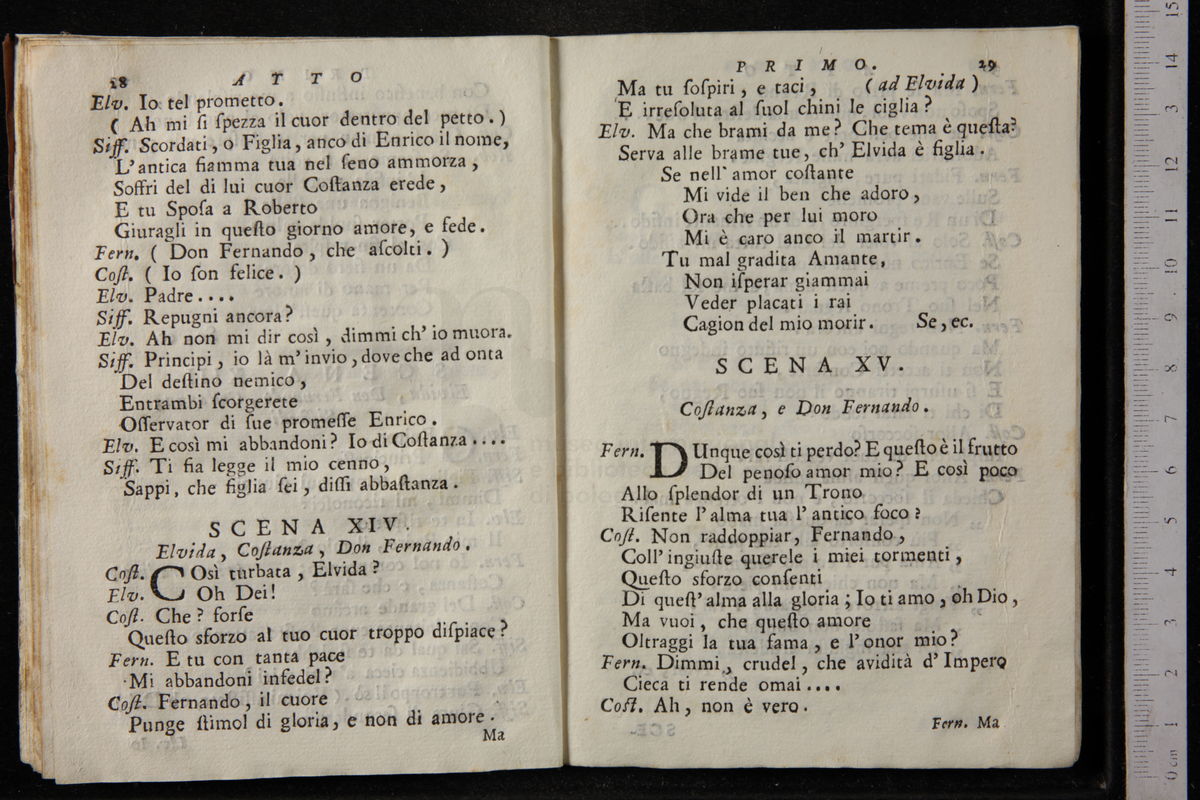 28 ATTO
Elv. Io tel prometto.
( Ah mi ſi ſpezza il cuor dentro del petto. )
Siff. Scordati, o Figlia, anco di Enrico il nome,
L'antica fiamma tua nel ſeno ammorza,
Soffri del di lui cuor Coſtanza erede,
E tu Spoſa a Roberto
Giuragli in queſto giorno amore, e fede.
Fern. ( Don Fernando, che aſcolti. )
Coſt. ( Io ſon felice. )
Elv. Padre....
Siff. Repugni ancora?
Elv. Ah non mi dir così, dimmi ch' io muora.
Siff. Principi, io là m' invio, dove che ad onta
Del deſtino nemico,
Entrambi ſcorgerete
Oſſervator di ſue promeſſe Enrico.
Elv. E così mi abbandoni? Io di Coſtanza....
Siff. Ti fia legge il mio cenno,
Sappi, che figlia ſei, diſſi abbaſtanza.
SCENA XIV.
Elvida, Coſtanza, Don Fernando.
Coſt. COsì turbata, Elvida?
Elv. Oh Dei!
Coſt. Che? forſe
Queſto sforzo al tuo cuor troppo diſpiace?
Fern. E tu con tanta pace
Mi abbandoni infedel?
Coſt. Fernando, il cuore
Punge ſtimol di gloria, e non di amore.
Ma
PRIMO. 29
Ma tu ſoſpiri, e taci, ( ad Elvida )
E irreſoluta al ſuol chini le ciglia?
Elv. Ma che brami da me? Che tema è queſta?
Serva alle brame tue, ch' Elvida è figlia.
Se nell' amor coſtante
Mi vide il ben che adoro,
Ora che per lui moro
Mi è caro anco il martir.
Tu mal gradita Amante,
Non iſperar giammai
Veder placati i rai
Cagion del mio morir. Se, ec.
SCENA XV.
Coſtanza, e Don Fernando.
Fern. DUnque così ti perdo? E queſto è il frutto
Del penoſo amor mio? E così poco
Allo ſplendor di un Trono
Riſente l' alma tua l' antico foco?
Coſt. Non raddoppiar, Fernando,
Coll' ingiuſte querele i miei tormenti,
Queſto sforzo conſenti
Di queſt' alma alla gloria; Io ti amo, oh Dio,
Ma vuoi, che queſto amore
Oltraggi la tua fama, e l' onor mio?
Fern. Dimmi, crudel, che avidità d' Impero
Cieca ti rende omai....
Coſt. Ah, non è vero.
Fern. Ma